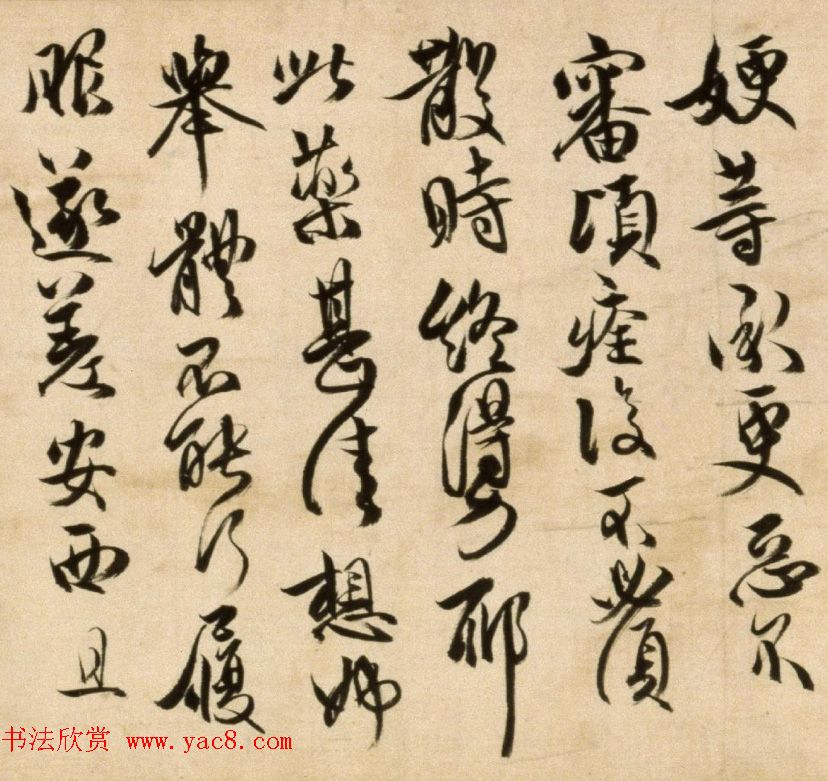 㛐等承更惡不
審頃痊復不必須
散時終得力耶
此藥甚佳想姊
舉體不能行履
服遂差安西且
书法欣赏 www.yac8.com